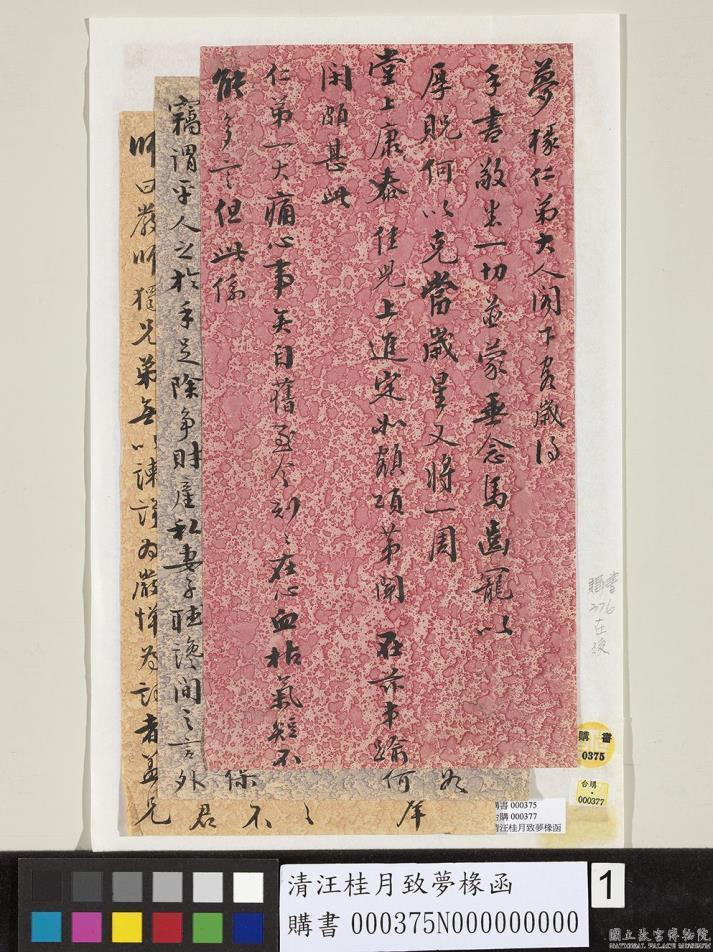 夢椽仁弟大人閣下客歲得
手書敬悉一切並蒙垂念馬齒寵以
厚貺何以克當歲星又將一周
堂上康泰佳兒上進定如額頌第閣在前事
閑頗甚此
仁弟一大痛心事矣自舊至今刻々在心血枯氣短不
能多言但此係
竊謂平人之於手足除爭財產私妻子聽讒間之言外
師曰嚴師獨兄弟無以諫諍為嚴憚為
君不
購書
0375
台購
000377
購書 000375
台購 000377
清汪桂月致夢椽函
購書
376
在後
清汪桂月致夢椽函
購書 000375N000000000
1
國立故宮博物院
NATIONAL PALACE MUSEUM